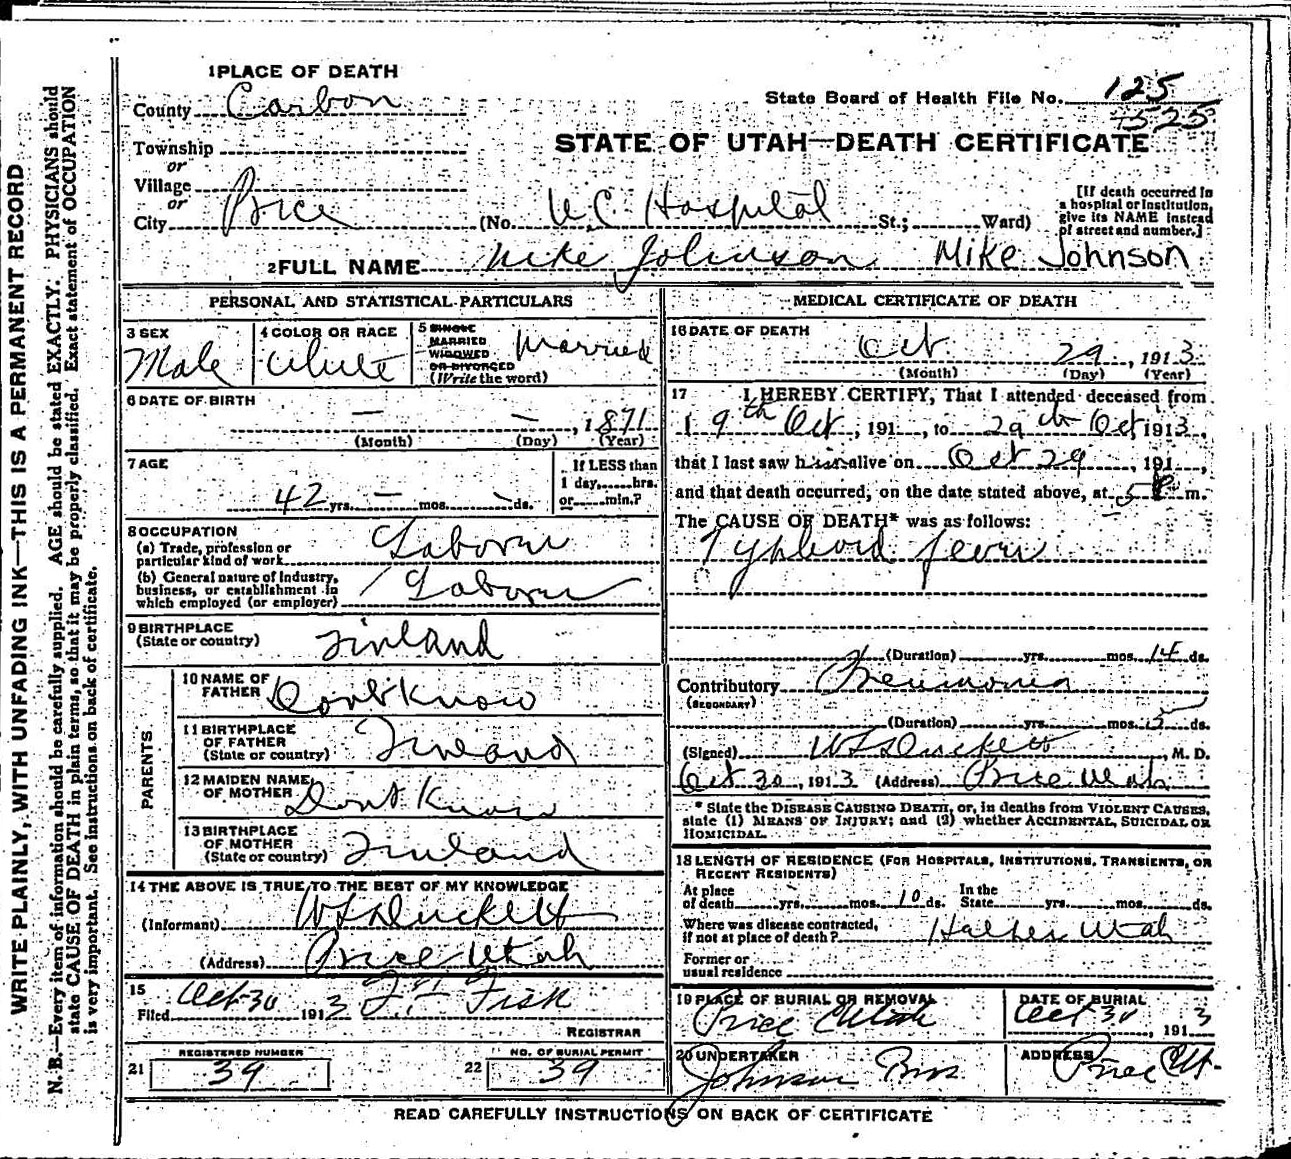 WRITE PLAINLY, WITH UNFADING INK—THIS IS A PERMANENT RECORD
N. B.—Every item of information should be carefully supplied. AGE should be stated EXACTLY. PHYSICIANS should
state CAUSE OF DEATH in plain terms, so that it may be properly classified. Exact statement of OCCUPATION
is very important. See instructions on back of certificate.
1 PLACE OF DEATH
County Carbon
State Board of Health File No. 125
525
STATE OF UTAH—DEATH CERTIFICATE
Township
or
Village
or
City Price (No. U.C. Hospital St.; Ward)
[If death occurred in
a hospital or institution,
give its NAME instead
of street and number.]
2 FULL NAME Mike Johnson Mike Johnson
PERSONAL AND STATISTICAL PARTICULARS
3 SEX
Male
4 COLOR OR RACE
White
5 SINGLE
MARRIED
WIDOWED
OR DIVORCED
(Write the word)
Married
6 DATE OF BIRTH
— — , 1871
(Month) (Day) (Year)
7 AGE
42 yrs. — mos. — ds.
If LESS than
1 day, hrs.
or min.?
8 OCCUPATION
(a) Trade, profession or
particular kind of work Laborer
(b) General nature of industry,
business, or establishment in
which employed (or employer) Laborer
9 BIRTHPLACE
(State or country) Finland
PARENTS
10 NAME OF
FATHER Dont Know
11 BIRTHPLACE
OF FATHER
(State or country) Finland
12 MAIDEN NAME
OF MOTHER Dont Know
13 BIRTHPLACE
OF MOTHER
(State or country) Finland
14 THE ABOVE IS TRUE TO THE BEST OF MY KNOWLEDGE
(Informant) W F Duckett
(Address) Price Utah
15
Filed Oct 30 1913 Fisk
REGISTRAR
REGISTERED NUMBER
21 39
NO. OF BURIAL PERMIT
22 39
MEDICAL CERTIFICATE OF DEATH
16 DATE OF DEATH
Oct 29 , 1913
(Month) (Day) (Year)
17 I HEREBY CERTIFY, That I attended deceased from
19th Oct , 191 , to 29th Oct 1913,
that I last saw him alive on Oct 29 , 191 ,
and that death occurred, on the date stated above, at 5 P m.
The CAUSE OF DEATH* was as follows:
Typhoid fever
(Duration) yrs. mos. 14 ds.
Contributory Pneumonia
(SECONDARY)
(Duration) yrs. mos. 5 ds.
(Signed) W F Duckett , M. D.
Oct 30, 1913 (Address) Price Utah
* State the DISEASE CAUSING DEATH, or, in deaths from VIOLENT CAUSES,
state (1) MEANS OF INJURY; and (2) whether ACCIDENTAL, SUICIDAL OR
HOMICIDAL.
18 LENGTH OF RESIDENCE (FOR HOSPITALS, INSTITUTIONS, TRANSIENTS, OR
RECENT RESIDENTS)
At place
of death yrs. mos. 10 ds.
In the
State yrs. mos. ds.
Where was disease contracted,
if not at place of death? Helper Utah
Former or
usual residence
19 PLACE OF BURIAL OR REMOVAL
Price Utah
DATE OF BURIAL
Oct 30 , 1913
20 UNDERTAKER
Johnson Bros
ADDRESS
Price Ut.
READ CAREFULLY INSTRUCTIONS ON BACK OF CERTIFICATE